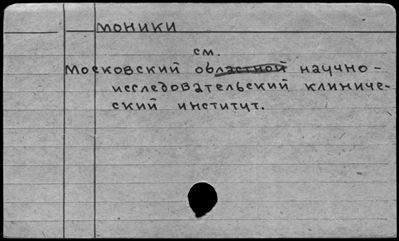 МОНИКИ
см.
Московский областной научно-
исследовательский клиниче-
ский институт.